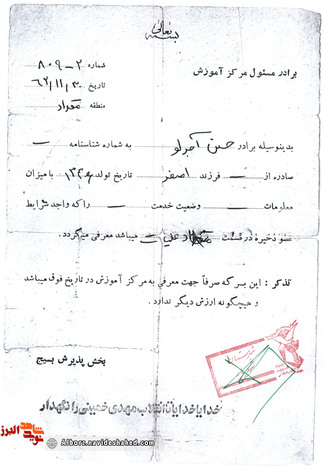 بسمه تعالی
شماره ۸۰۹-۲
برادر مسئول مرکز آموزش
تاریخ ۶۲/۱۱/۳۰
منطقه مقداد
بدینوسیله برادر حسن آجرلو به شماره شناسنامه —
صادره از — فرزند اصغر تاریخ تولد با میزان
معلومات — وضعیت خدمت — را که واجد شرایط
عضو ذخیره در قسمت میباشد معرفی میگردد.
تذکر : این برگه صرفاً جهت معرفی به مرکز آموزش در تاریخ فوق میباشد
و هیچگونه ارزش دیگر ندارد.
بخش پذیرش بسیج
خدایا خدایا تا انقلاب مهدی خمینی را نگهدار
نوید شاهد
البرز
Alborz.navideshahed.com